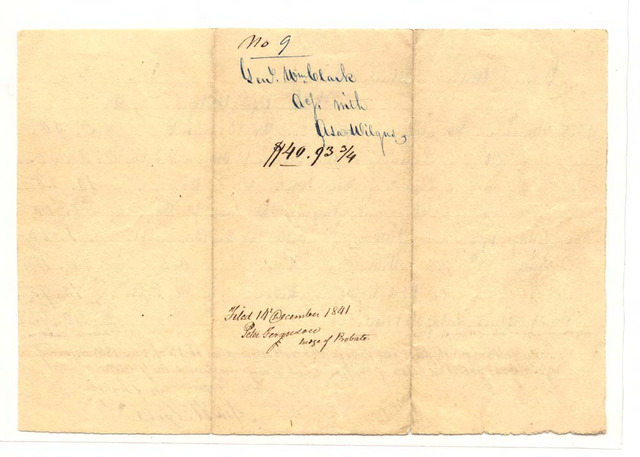 No 9
Genl. Wm Clark
a/c. with
Asa Wilgus
$40.93 3/4
Filed 14 December 1841
Peter Ferguson
Judge of Probate